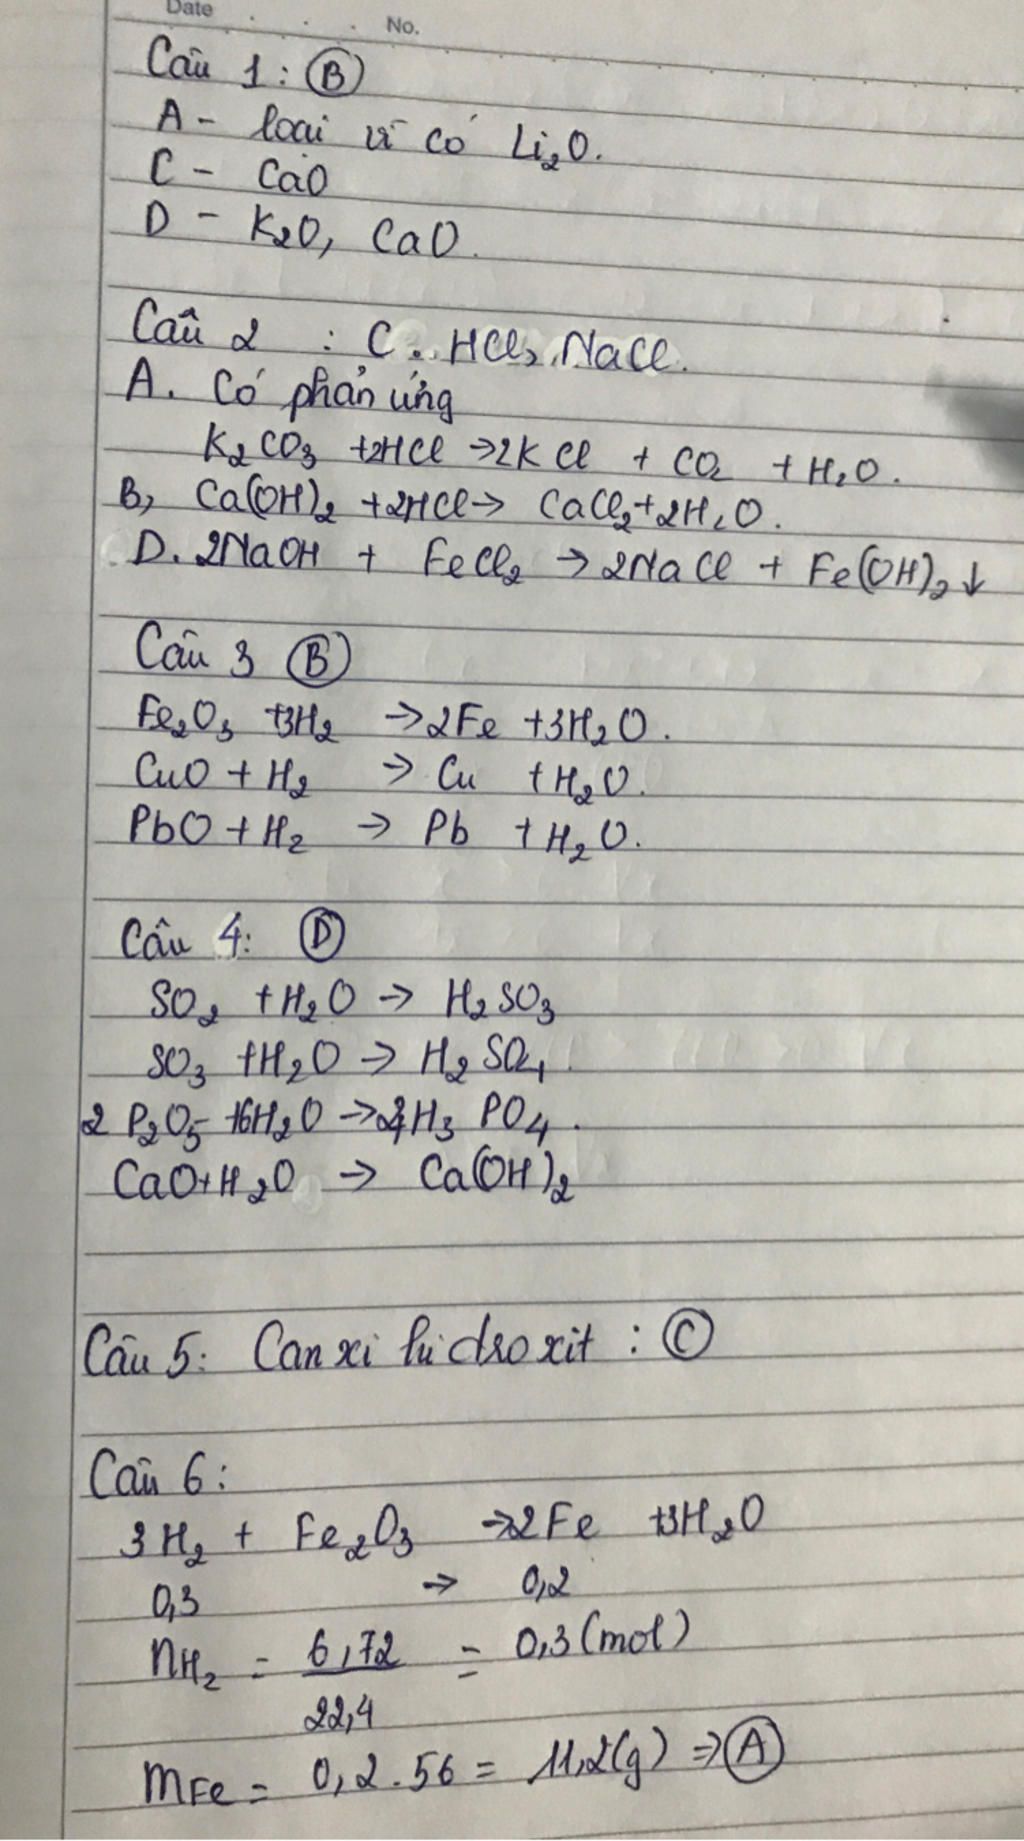 Date No.
Câu 1: B
A - loại vì có Li₂O.
C - CaO
D - K₂O, CaO.
Câu 2 : C. HCl, NaCl.
A. Có phản ứng
K₂CO₃ +2HCl →2KCl + CO₂ + H₂O.
B, Ca(OH)₂ +2HCl→ CaCl₂+2H₂O.
D. 2NaOH + FeCl₂ → 2NaCl + Fe(OH)₂↓
Câu 3 B
Fe₂O₃ +3H₂ →2Fe +3H₂O.
CuO + H₂ → Cu + H₂O.
PbO + H₂ → Pb + H₂O.
Câu 4: D
SO₂ + H₂O → H₂SO₃
SO₃ + H₂O → H₂SO₄.
2 P₂O₅ +6H₂O → H₃PO₄.
CaO+H₂O → Ca(OH)₂
Câu 5: Canxi hidroxit : C
Câu 6:
3H₂ + Fe₂O₃ →2Fe +3H₂O
0,3 → 0,2
nH₂ = 6,72 / 22,4 = 0,3(mol)
mFe = 0,2.56 = 11,2(g) ⇒ A